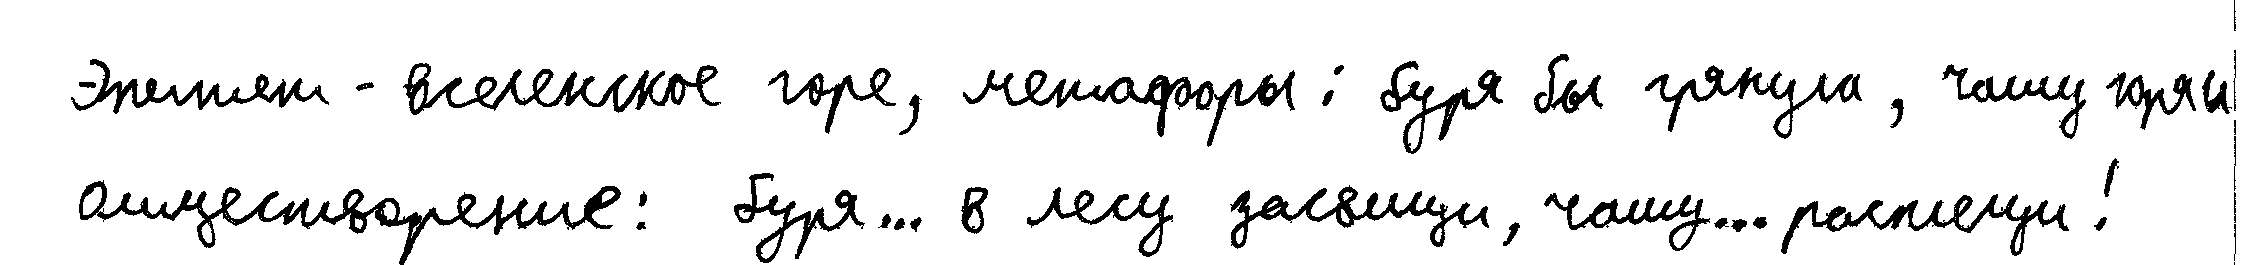 Эпитет - вселенское горе, метафоры: буря бы грянула, чашу горя и
олицетворение: буря... в лесу засвищи, чашу... расплещи!